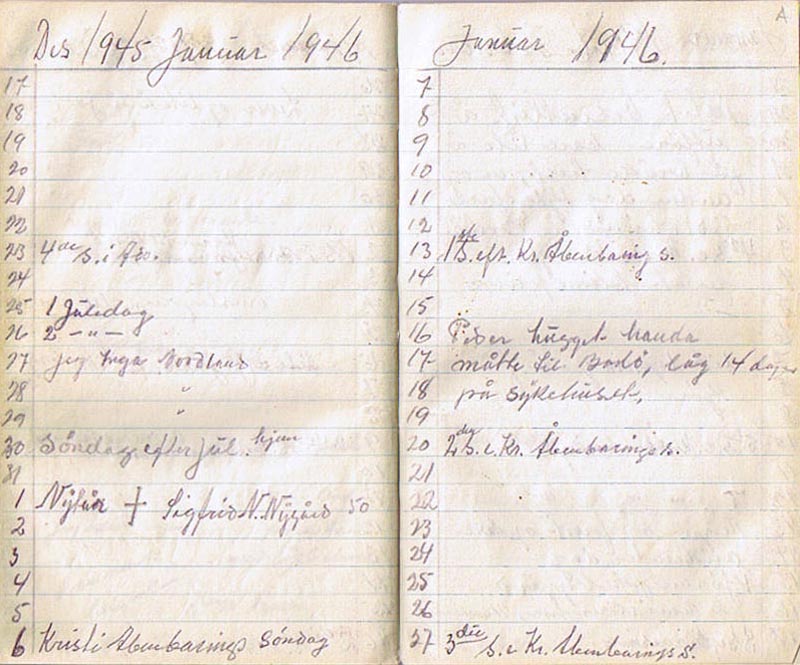 Des 1945 Januar 1946
17
18
19
20
21
22
23 4de s. i Adv.
24
25 1 Juledag
26 2 — " —
27 jeg Inga Nordland
28 "
29 "
30 Søndag efter jul. hjem
31
1 Nyttår + Sigfrid N. Nygård 50
2
3
4
5
6 Kristi Åbenbarings Søndag
A
Januar 1946.
7
8
9
10
11
12
13 1ste S. eft. Kr. Åbenbaring s.
14
15
16 Peder hugget handa
17 måtte til Bodö, låg 14 dager
18 på sykehuset,
19
20 2den S. e. Kr. Åbenbarings s.
21
22
23
24
25
26
27 3die S. e. Kr. Åbenbarings s.